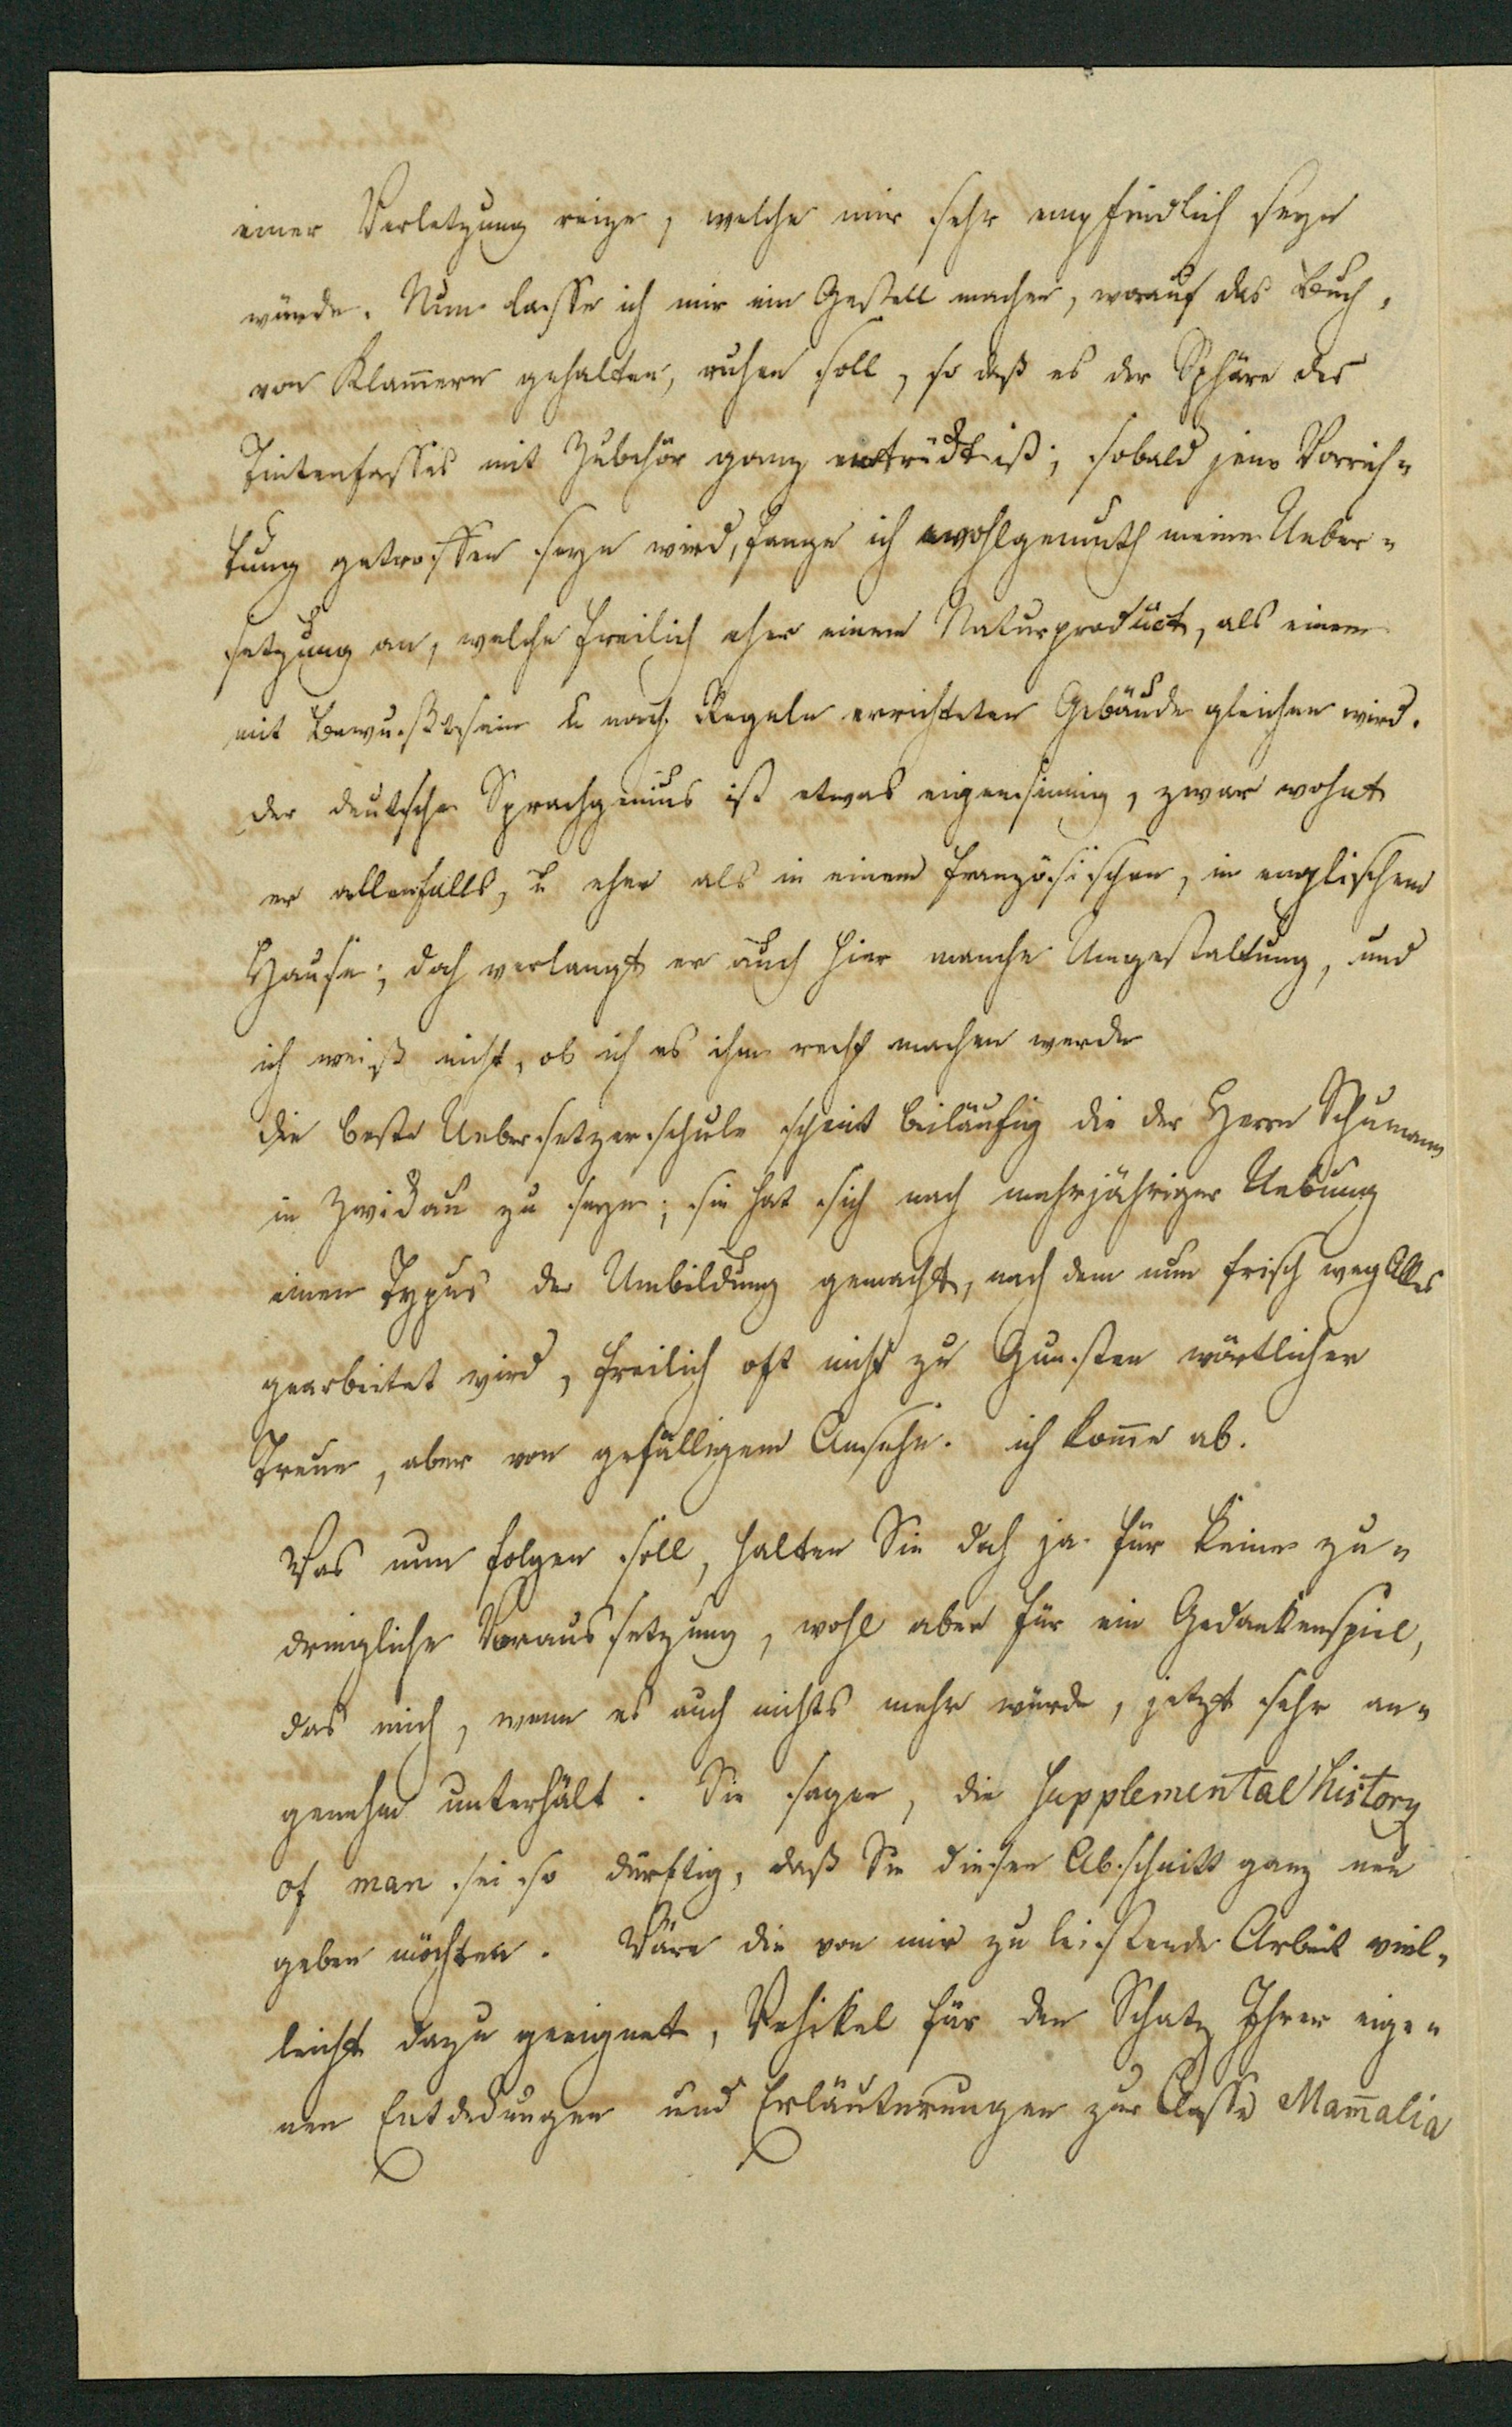 einer Verletzung reize, welche mir sehr empfindlich seyn
würde. Nun lasse ich mir ein Gestell machen, worauf das Buch,
von Klam̅ern gehalten, ruhen soll, so daß es der Sphäre des
Tintenfasses mit Zubehör ganz entrückt ist; sobald jene Vorrich-
tung getroffen seyn wird, fange ich wohlgemuth meine Ueber-
setzung an, welche freilich eher einem Naturproduct, als einem
mit Bewußtsein u nach Regeln errichteten Gebäude gleichen wird.
Der deutsche Sprachgenius ist etwas eigensinnig, zwar wohnt
er allenfalls, u eher als in einem französischen, in englischem
Hause; doch verlangt er auch hier manche Umgestaltung, und
ich weiß nicht, ob ich es ihm recht machen werde
Die beste Uebersetzerschule scheint beiläufig die der Herrn Schumann
in Zwickau zu seyn; sie hat sich nach mehrjähriger Uebung
einen Typus der Umbildung gemacht, nach dem nun frisch weg Alles
gearbeitet wird, freilich oft nicht zu Gunsten wörtlicher
Treue, aber von gefälligem Ansehn. ich kom̅e ab.
Was nun folgen soll, halten Sie doch ja für keine zu-
dringliche Voraussetzung, wohl aber für ein Gedankenspiel,
das mich, wenn es auch nichts mehr würde, jetzt sehr an-
genehm unterhält. Sie sagen, die Supplemental history
of man sei so dürftig, daß Sie diesen Abschnitt ganz neu
geben möchten. Wäre die von mir zu leistende Arbeit viel-
leicht dazu geeignet, Vehikel für den Schatz Ihrer eige-
nen Entdeckungen und Erläuterungen zur Classe Mam̅alia